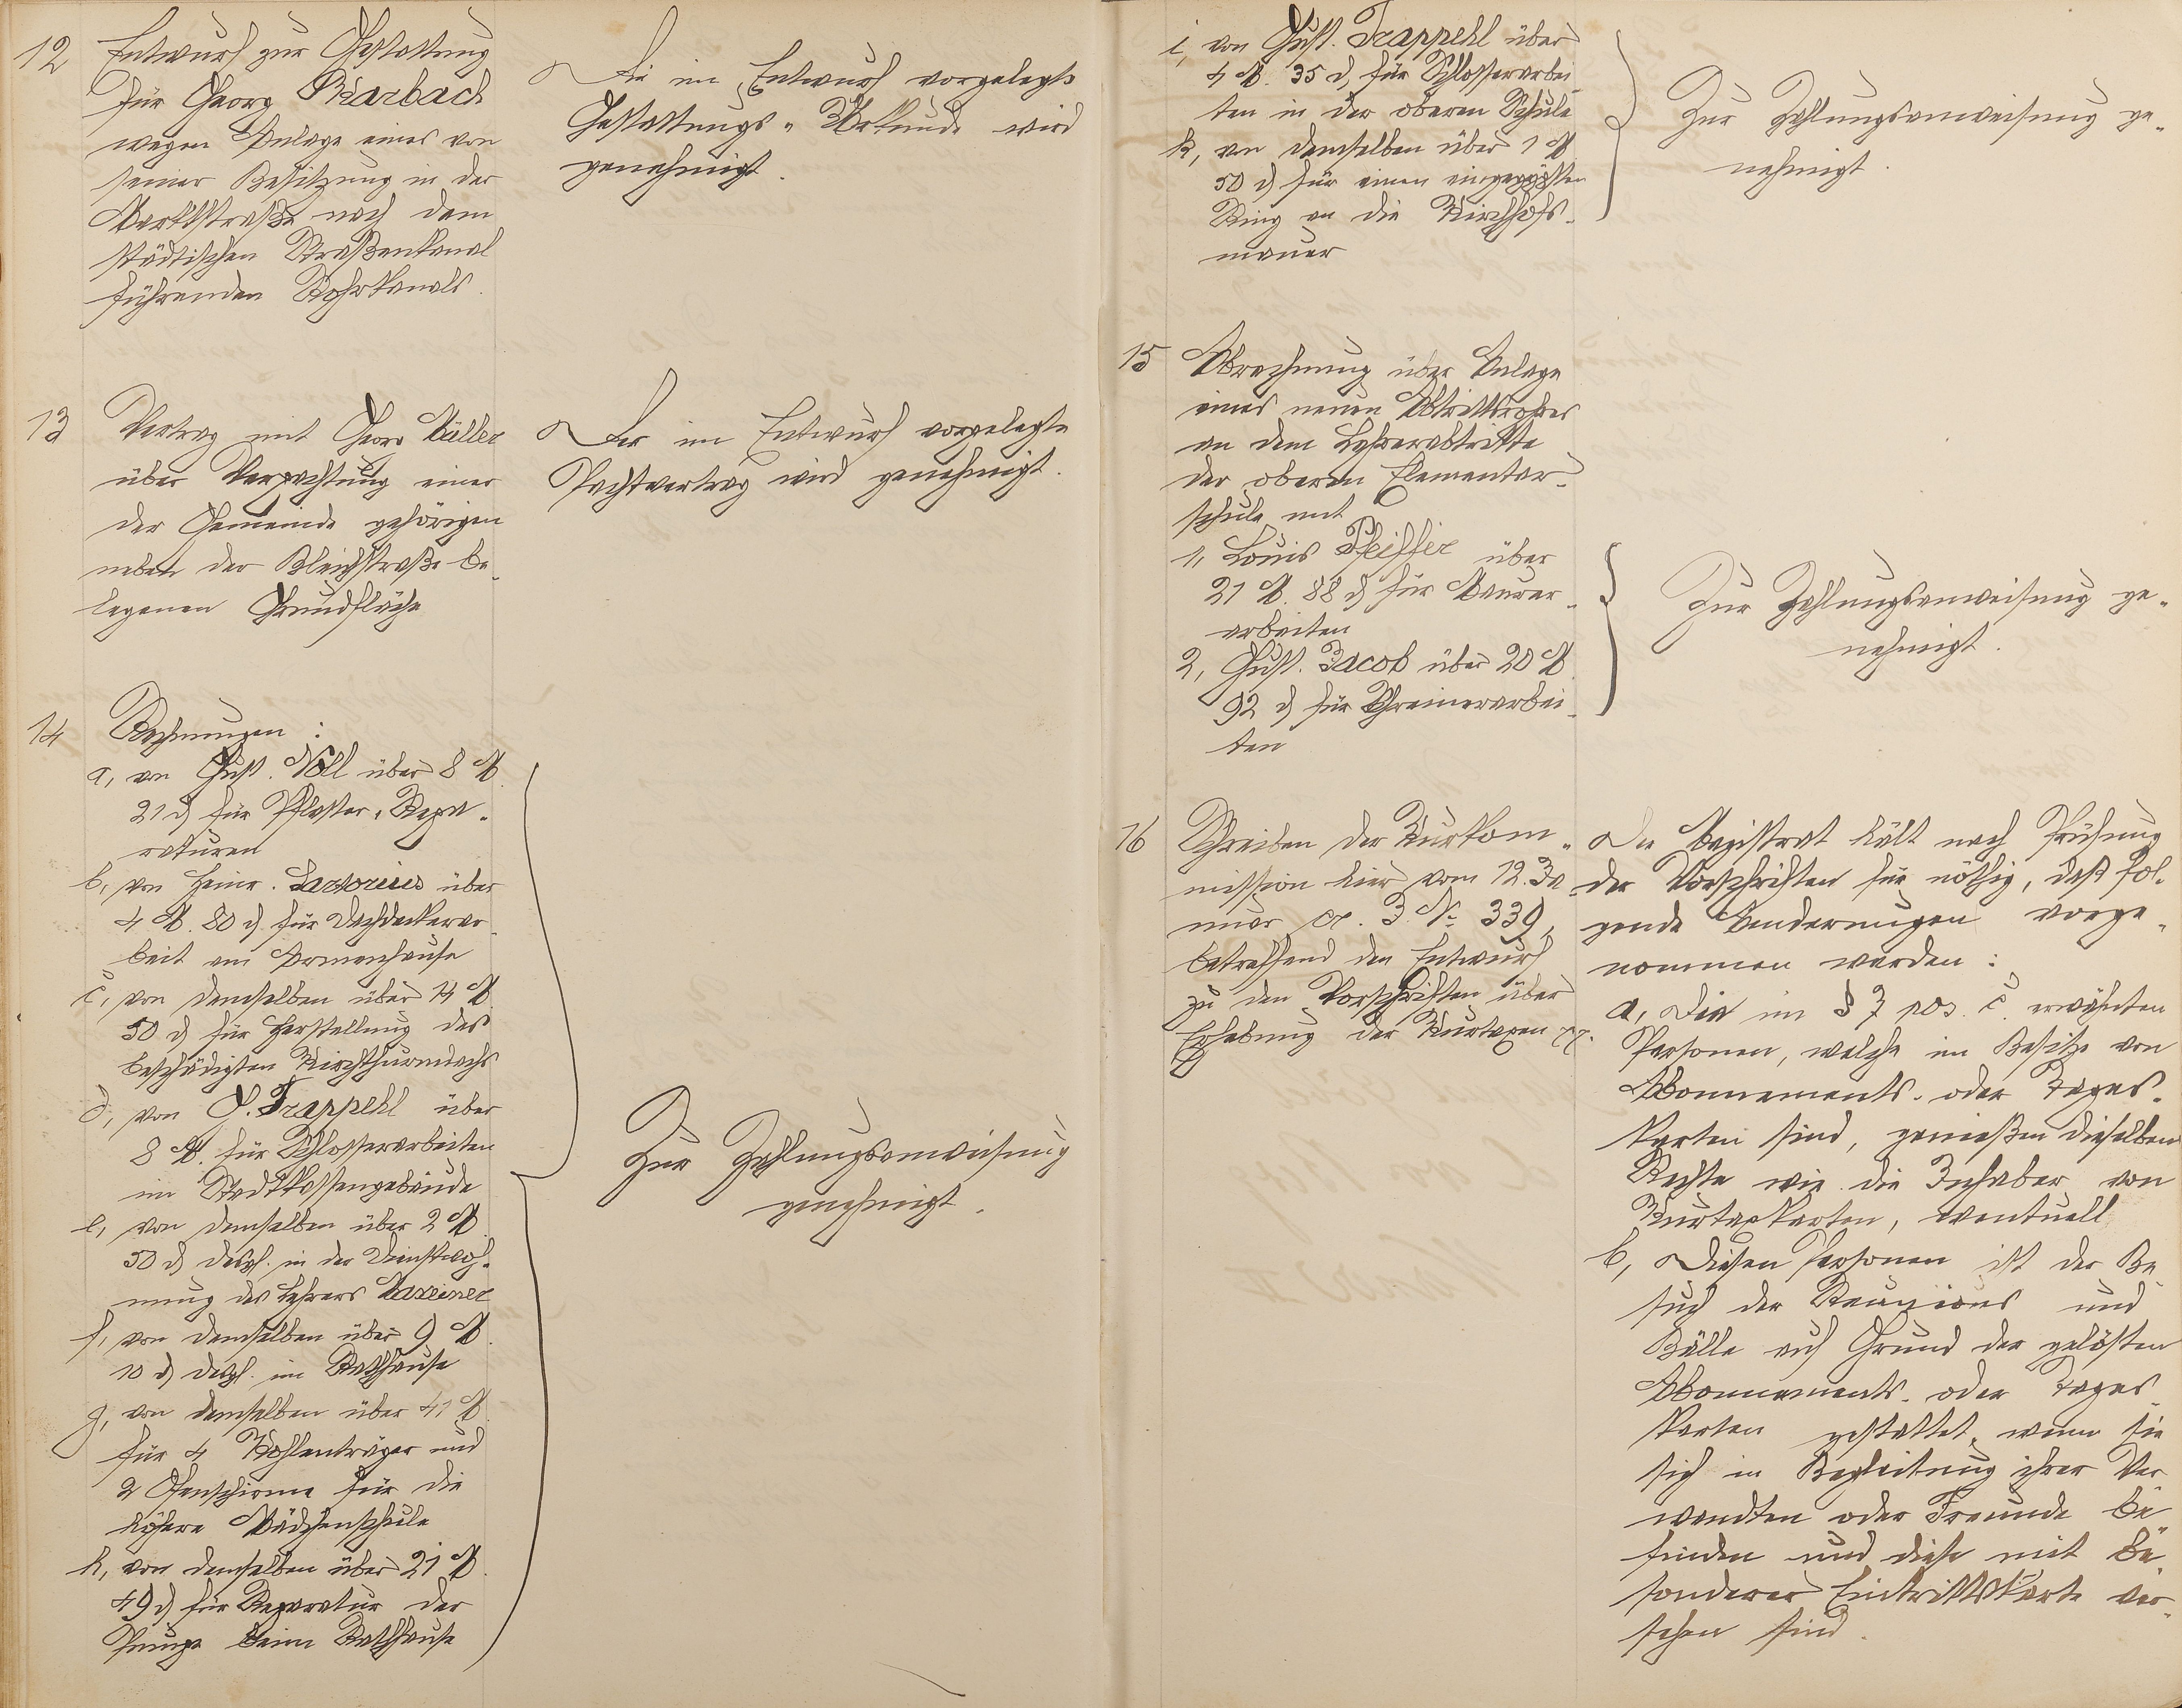 12
Entwurf zur Gestattung
für Georg Marbach
wegen Anlage eines von
seiner Besitzung in der
Marktstraße nach dem
städtischen Straßenkanal
führenden Rohrkanals.
Die im Entwurf vorgelegte
Gestattungs-Urkunde wird
genehmigt.
13
Vertrag mit Georg Müller
über Verpachtung einer
der Gemeinde gehörigen
neben der Bleichstraße be-
legenen Grundfläche
Der im Entwurf vorgelegte
Pachtvertrag wird genehmigt.
14
Rechnungen:
a, von Gust. Nöll über 8 M.
21 d für Pflaster-Repa-
raturen
b, von Heinr. Sartorius über
4 M. 80 d für Dachdeckerar-
beit am Armenhause
c, von demselben über 14 M.
50 d für Herstellung des
beschädigten Kirchthurmdachs
d, von G. Trappehl über
8 M. für Schlosserarbeiten
im Stadtkassengebäude
e, von demselben über 2 M.
50 d desgl. in der Dienstwoh-
nung des Lehrers
f, von demselben über 9 M.
10 d desgl. im Rathhause
g, von demselben über 41 M.
für 4 Kohlenträger und
2 Ofenschirme für die
höhere Mädchenschule
h, von demselben über 21 M.
49 d für Reparatur der
Pumpe beim Rathhause
Zur Zahlungsanweisung
genehmigt.
i, von Gust. Trappehl über
4 M. 35 d für Schlosserarbei-
ten in der oberen Schule
k, von demselben über 1 M.
50 d für einen eingegypsten
Ring an die Kirchhofs-
mauer
Zur Zahlungsanweisung ge-
nehmigt.
15
Abrechnung über Anlage
eines neuen Abtrittrohres
an dem Lehrerabtritte
der oberen Elementar-
schule mit
1, Louis Pfeiffer über
21 M. 88 d für Maurer-
arbeiten
2, Gust. Jacob über 20 M.
92 d für Schreinerarbei-
ten
Zur Zahlungsanweisung ge-
nehmigt.
16
Schreiben der Kurkom-
mission hier vom 12. Ja-
nuar cr. J. No. 339,
betreffend den Entwurf
zu den Vorschriften über
Erhebung der Kurtaxen pp.
Der Magistrat hält nach Prüfung
der Vorschriften für nöthig, daß fol-
gende Aenderungen vorge-
nommen werden:
a, Die im § 7 pos. c. erwähnten
Personen, welche im Besitze von
Abonnements- oder Tages-
karten sind, genießen dieselben
Rechte wie die Inhaber von
Kurtaxkarten, eventuell
b, Diesen Personen ist der Be-
such der Reunions und
Bälle auf Grund der gelösten
Abonnements- oder Tages-
karten gestattet, wenn sie
sich in Begleitung ihrer Ver-
wandten oder Freunde be-
finden und diese mit be-
sonderer Eintrittskarte ver-
sehen sind.